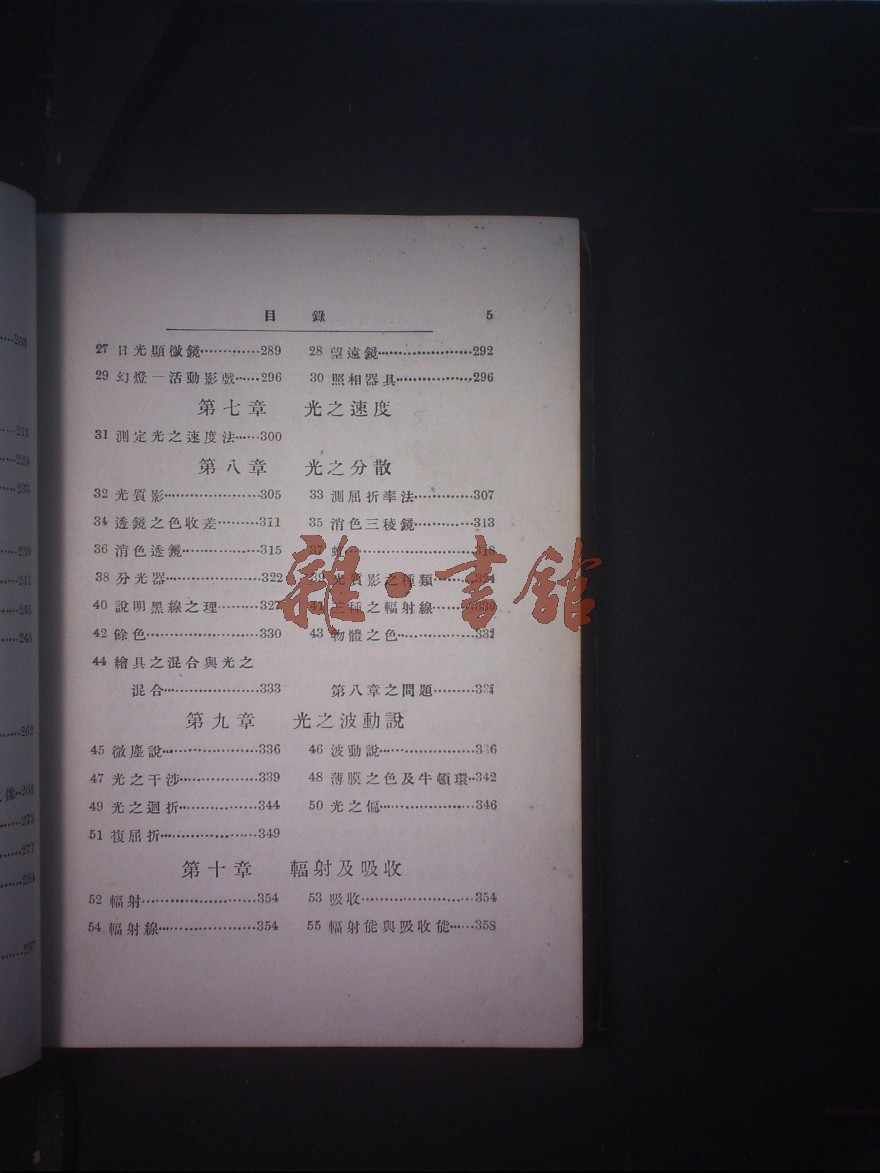 目錄 5
27 日光顯微鏡·············289 28 望遠鏡··················292
29 幻燈—活動影戲······296 30 照相器具···············296
第七章 光之速度
31 測定光之速度法······300
第八章 光之分散
32 光質影···················305 33 測屈折率法············307
34 透鏡之色收差·········311 35 消色三稜鏡············313
36 消色透鏡···············315 37 虹························318
38 分光器··················322 39 光質影之種類·········324
40 說明黑線之理·········327 41 三種之輻射線·········330
42 餘色·····················330 43 物體之色···············332
44 繪具之混合與光之
混合····················333 第八章之問題·········335
第九章 光之波動說
45 微塵說··················336 46 波動說··················336
47 光之干涉···············339 48 薄膜之色及牛頓環··342
49 光之迴折···············344 50 光之偏··················346
51 複屈折··················349
第十章 輻射及吸收
52 輻射·····················354 53 吸收·····················354
54 輻射線··················354 55 輻射能與吸收能······358
雜·書館
203
211
229
233
239
241
245
248
262
像··268
273
277
284
287